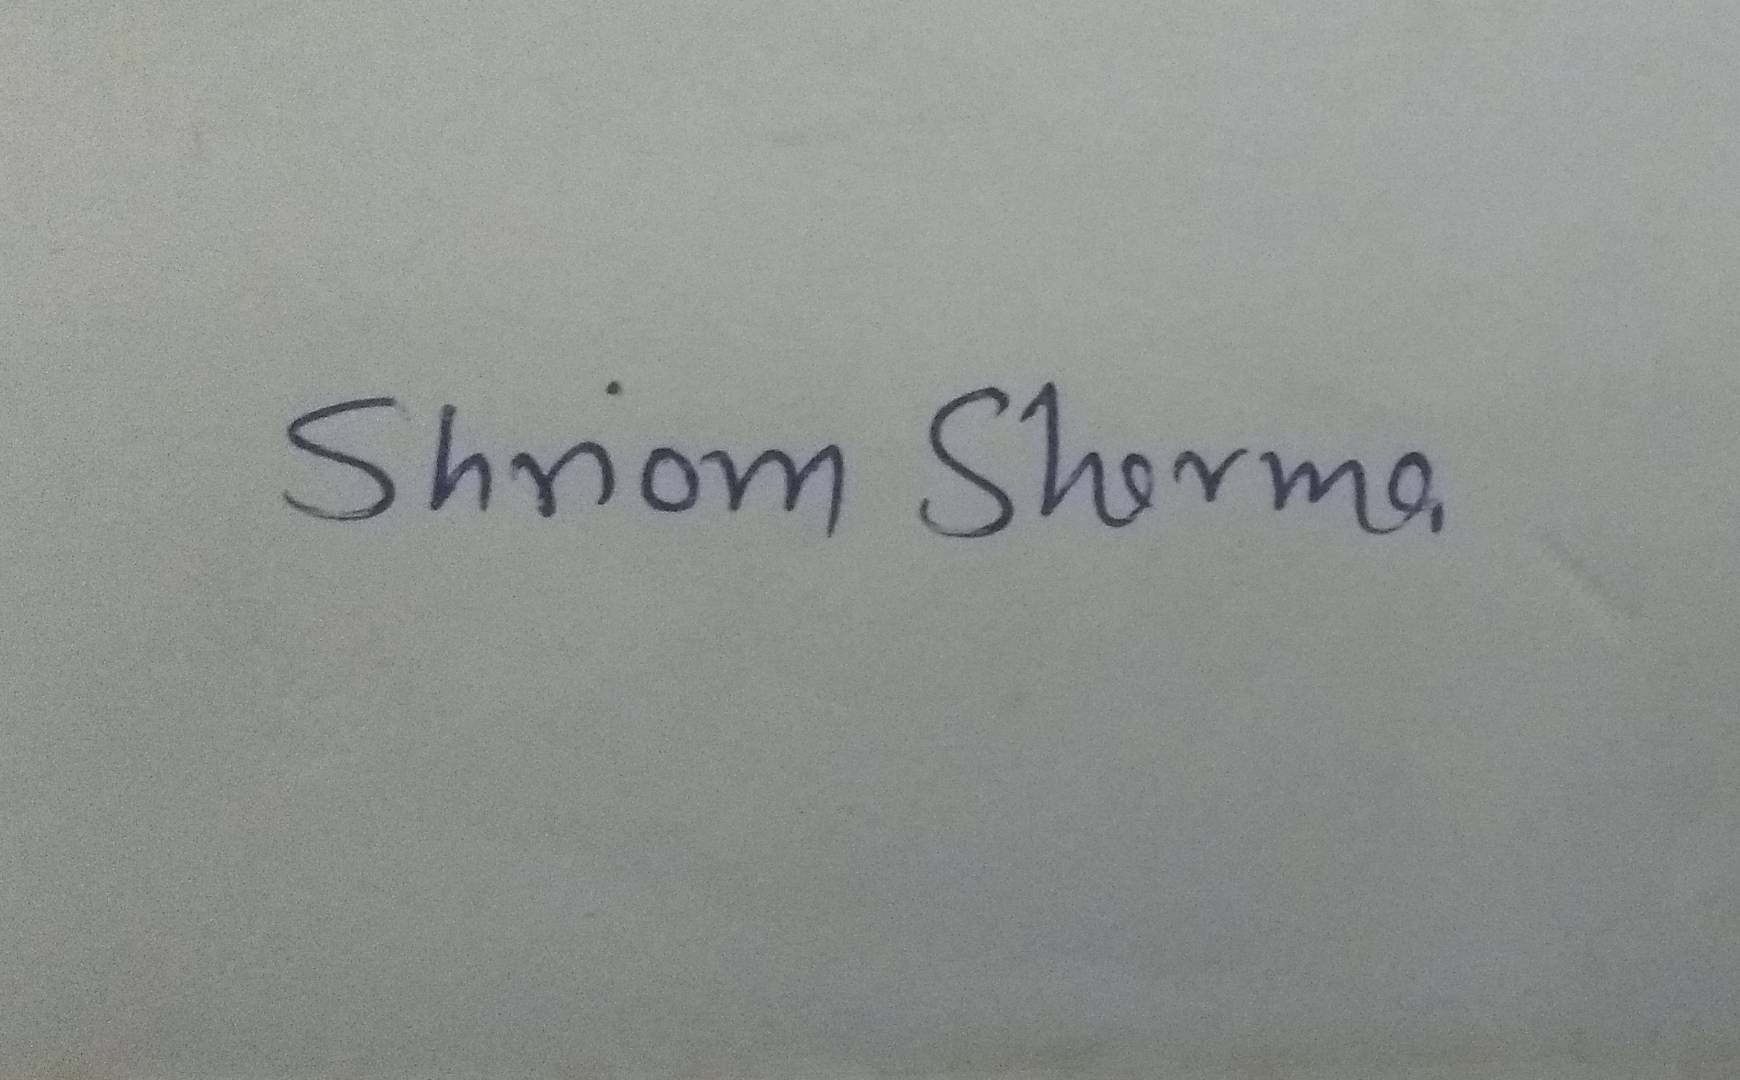 Shriom Sharma